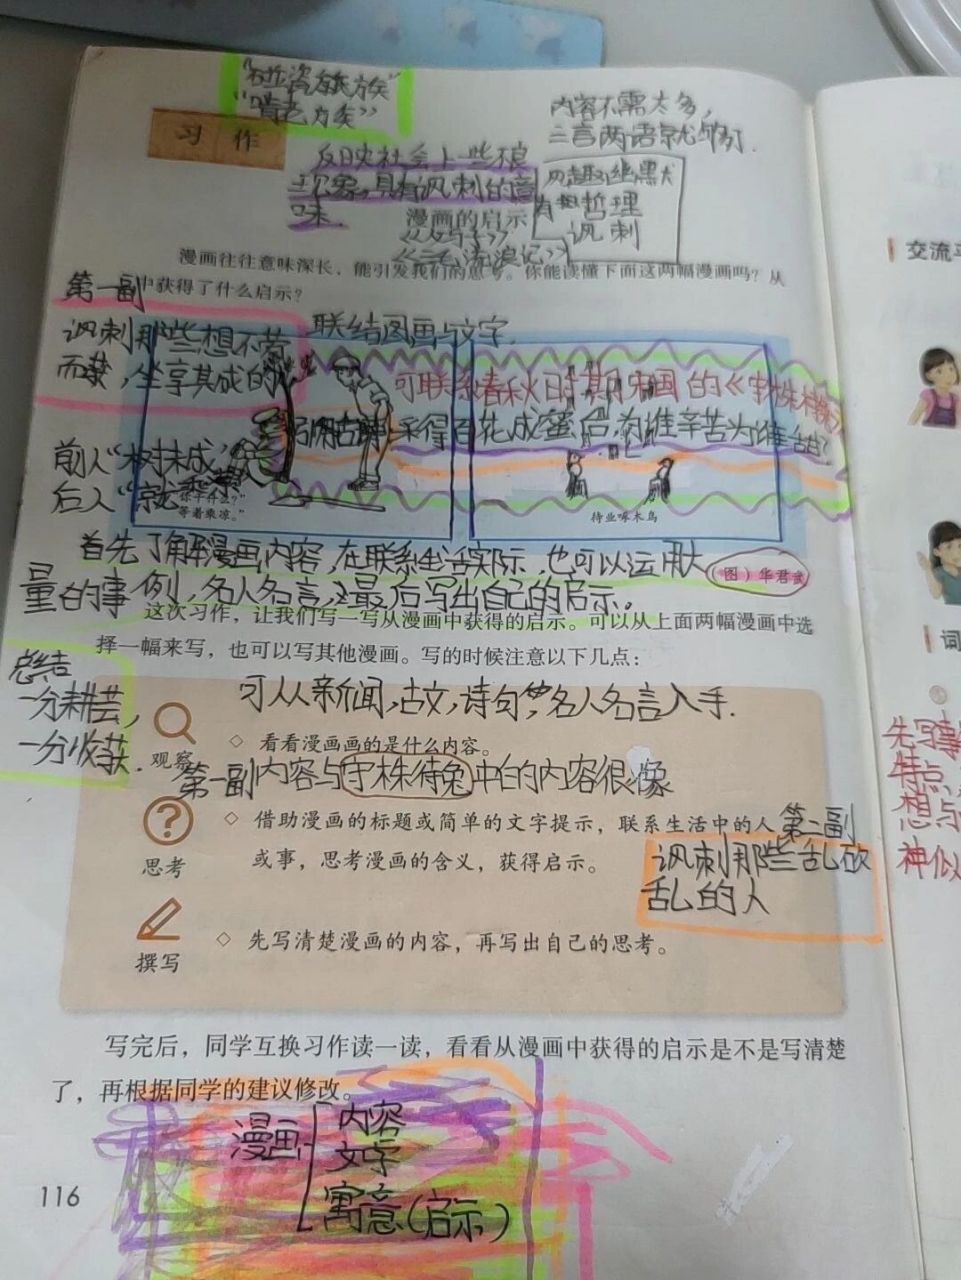 "啃老族"
习作
内容不需太多,
三言两语就够了.
反映社会上一些不良
现象,具有讽刺的意
味.
风趣幽默
有哲理
讽刺
漫画的启示
《父与子》
《三毛流浪记》
漫画往往意味深长,能引发我们的思考。你能读懂下面这两幅漫画吗?从
中获得了什么启示?
第一副
讽刺那些想不劳
而获,坐享其成的
联结图画与文字.
可联系春秋时期宋国的《守株待兔》
采得百花成蜜后,为谁辛苦为谁甜?
前人"树未成"
后人"就
"你干什么?"
"等着乘凉。"
待业啄木鸟
首先了解漫画内容,在联系生活实际,也可以运用大
量的事例,名人名言,最后写出自己的启示。
(图)华君武
这次习作,让我们写一写从漫画中获得的启示。可以从上面两幅漫画中选
择一幅来写,也可以写其他漫画。写的时候注意以下几点:
总结
一分耕耘,
一分收获.
可从从新闻,古文,诗句,名人名言入手.
观察
◇ 看看漫画画的是什么内容。
第一副内容与守株待兔中的内容很像
思考
◇ 借助漫画的标题或简单的文字提示,联系生活中的人
或事,思考漫画的含义,获得启示。
第二副
讽刺那些乱砍
乱的人
撰写
◇ 先写清楚漫画的内容,再写出自己的思考。
写完后,同学互换习作读一读,看看从漫画中获得的启示是不是写清楚
了,再根据同学的建议修改。
漫画
内容
文字
寓意(启示)
116
交流平
词
先写事
特点,
想与
神似